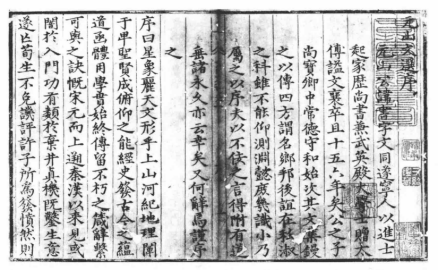 元山文選序
元山公諱書字文同遂寧人以進士
起家歷尚書兼武英殿大學士贈太
傅謚文襄卒且十五六年矣公之子
尚寶卿中常德守和始次其文
之以傳四方謂名鄉邦後誼在
屬之以序夫以不佞之言得附有道
之科雖不能仰測淵懿庶幾識小乃
垂諸永久亦云幸矣又何解焉謹序
之
序曰星象麗天文形乎上山河紀地理闡
于卑聖賢成俯仰之能經史發古今之蘊
道函體用學曺始終傳留不朽之箴辭繫
可與之訣慨宋元而上遡秦漢以來見或
闇於入門功有類於棄井貞機既鑿生意
遂亡荀生不免譏評許子所為發憤然則